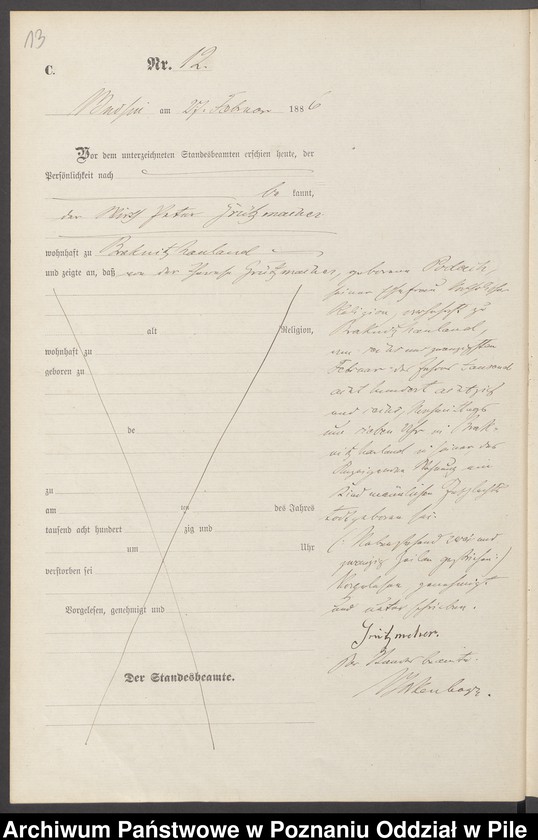 13
C.
Nr. 12.
am 27. Februar 1886
Vor dem unterzeichneten Standesbeamten erschien heute, der
Persönlichkeit nach
be kannt,
der Wirth Peter Grützmacher
wohnhaft zu
und zeigte an, daß von der Grützmacher, geborene
seiner Ehefrau
Religion, wohnhaft zu
alt Religion,
wohnhaft zu
geboren zu
Februar des Jahres tausend
acht hundert achtzig
und sechs, Vormittags
um sieben Uhr in
in seiner des
Anzeigenden Wohnung ein
Kind männlichen Geschlechts
todtgeboren sei.
de
zu
am ten des Jahres
tausend acht hundert zig und
um Uhr
verstorben sei
(: Nebenstehend zwei und
zwanzig Zeilen gestrichen :)
Vorgelesen, genehmigt
und unterschrieben.
Vorgelesen, genehmigt und
Grützmacher.
Der Standesbeamte.
Der Standesbeamte.
Archiwum Państwowe w Poznaniu Oddział w Pile